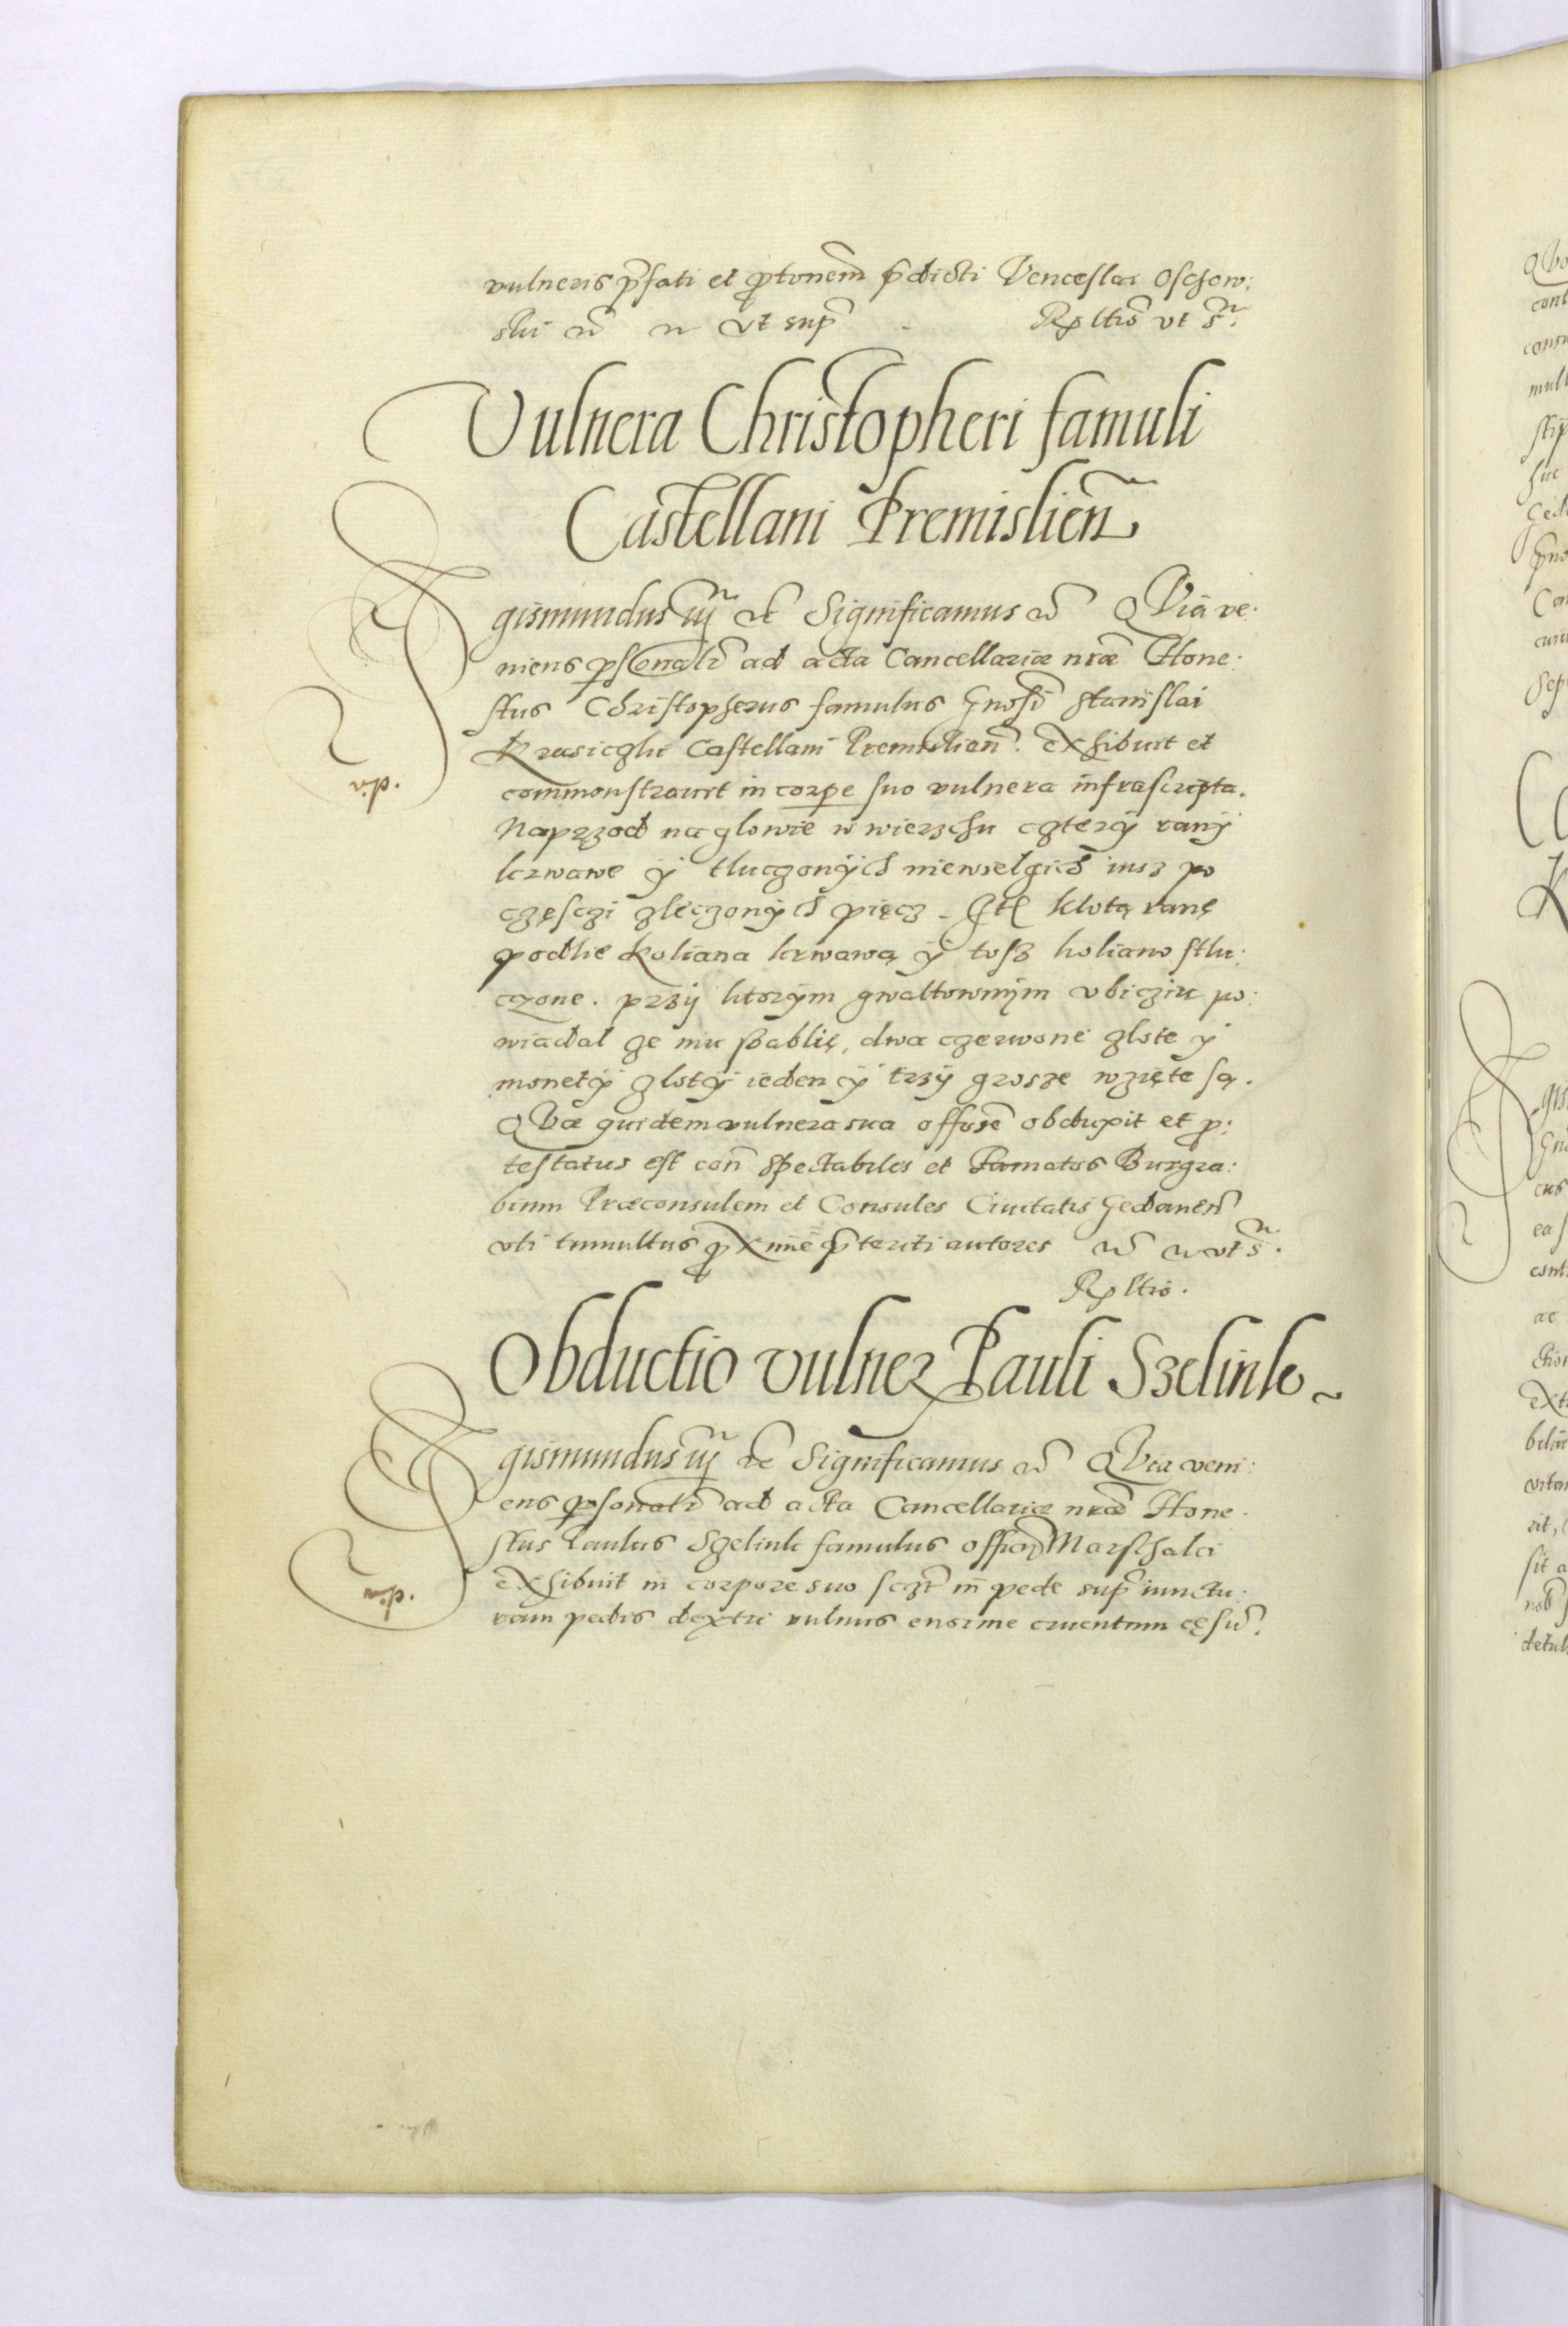 vulneris pꝛ̃fati et ꝓtonem̃ p̃dicti Venceslai Oschow:
ski etc̃ etc̃ ut sup̃ Rꝑltio ut s.
Vulnera Christopheri famuli
Castellani Premislieñ
Sigismundus iij etc̃ Significamus etc̃ Quia ve:
niens ꝑsonalr̃ ad acta Cancellariæ nr̃æ Hone:
stus Christopherus famulus Gnosi Stanislai
Krasiczki Castellani Premislien̄. exhibuit et
commonstravit in corpe suo vulnera infrascripta.
Naprzod na glowie w wierzchu cztery rany
krwawe y tluczonych niewielgich iusz po
częsczi zleczonych pięcz. Itē klotą ranę
podlie koliana krwawą y tosz koliano stlu:
czone. przy ktorym gwaltownym ubicziu po:
wiadal ze mu szablię, dwa czerwone zlote y
monety zloty ieden y trzy grosze wzięte są.
Quæ quidem vulnera sua offose obduxit et ꝓ:
testatus est con̄ Spectabiles et Famatos Burgra:
bium Præconsulem et Consules Civitatis Gedanen̄
uti tumultus ꝓxime p̃teriti autores etc̃ etc̃ ut s.
Rꝑltio.
Obductio vulneꝝ Pauli Szelink
Sigismundus iij etc̃ Significamus etc̃ Quia veni:
ens ꝑsonalr̃ ad acta Cancellariæ nr̃æ Hone:
stus Paulus Szelink famulus Marschalci
exhibuit in corpore suo sczt in pede sup̃ iunctu:
ram pedis dextri vulnus enorme cruentum cęsū.